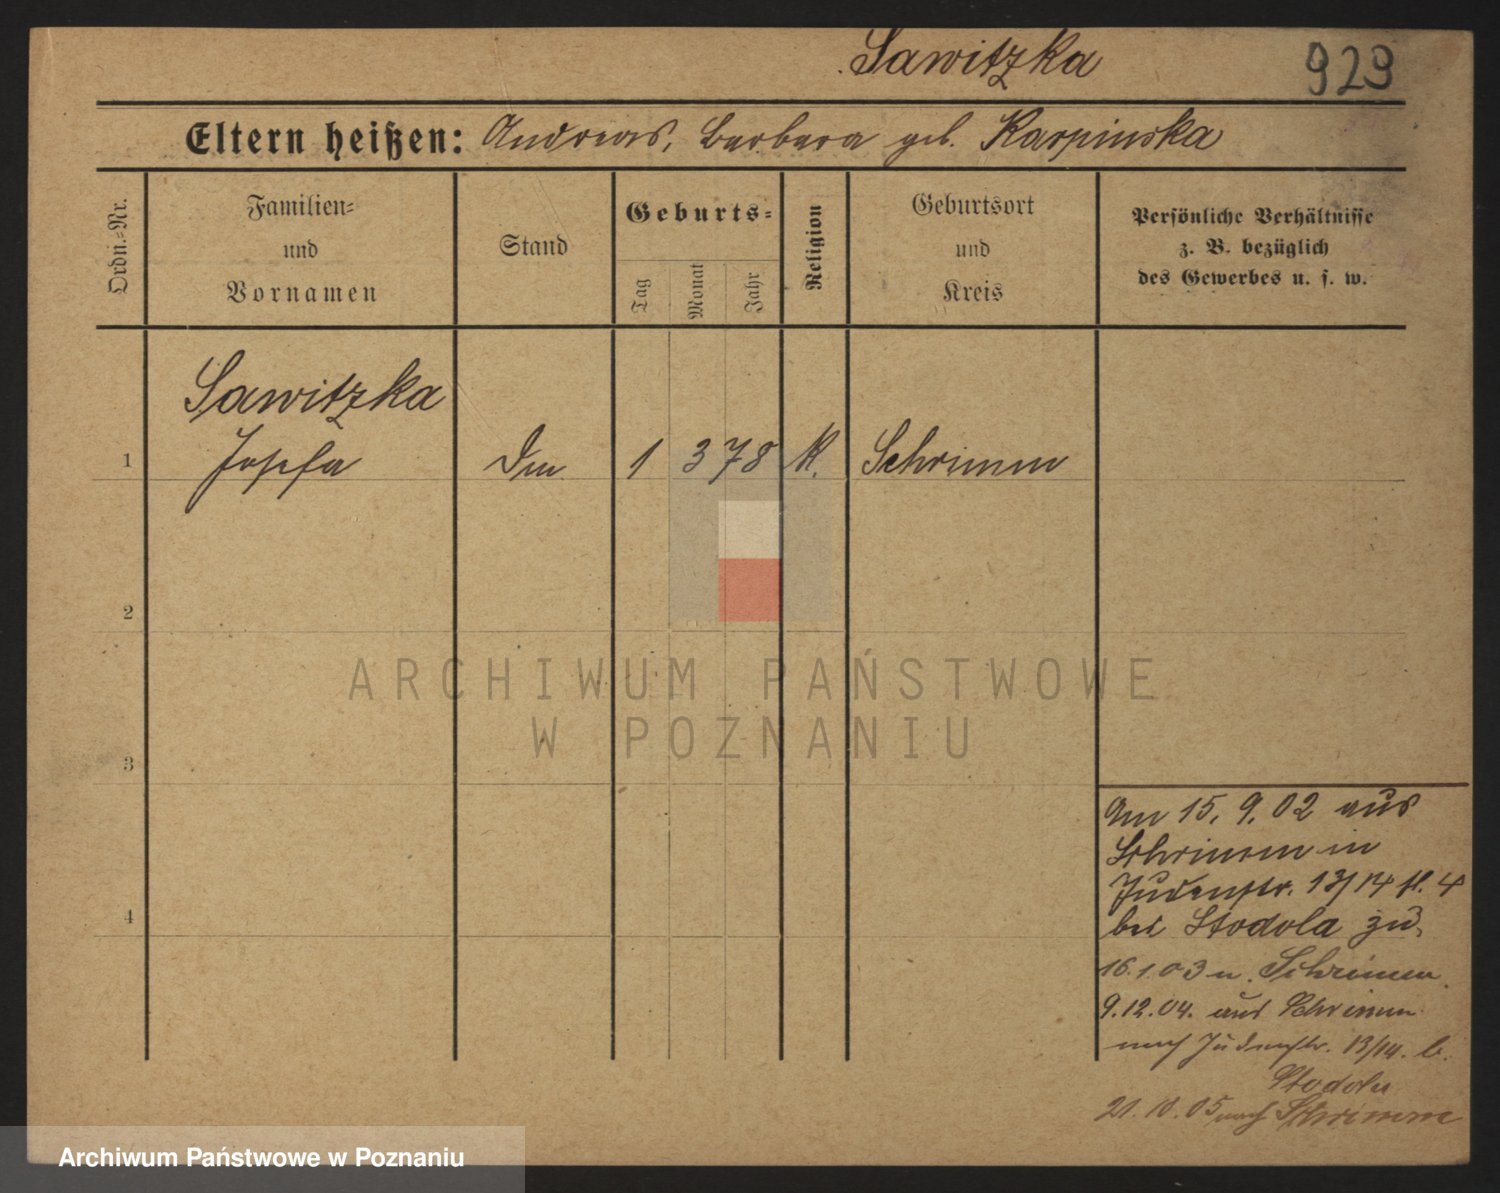 Sawitzka 929
Eltern heißen: Andreas, Barbara geb. Karpinska
Ordn.-Nr.
Familien-
und
Vornamen
Stand
Geburts-
Tag
Monat
Jahr
Religion
Geburtsort
und
Kreis
Persönliche Verhältnisse
z. B. bezüglich
des Gewerbes u. s. w.
Sawitzka
1 Josefa 1 3 78 K. Schrimm
2
3
4
ARCHIWUM PAŃSTWOWE
W POZNANIU
Am 15. 9. 02 aus
Schrimm in
Judenstr. 13/14 4
bei Stodola zu.
16.1.03 n. Schrimm.
9.12.04. aus Schrimm
nach Judenstr. 13/14. b.
Stodola
21. 10. 05 nach Schrimm
Archiwum Państwowe w Poznaniu